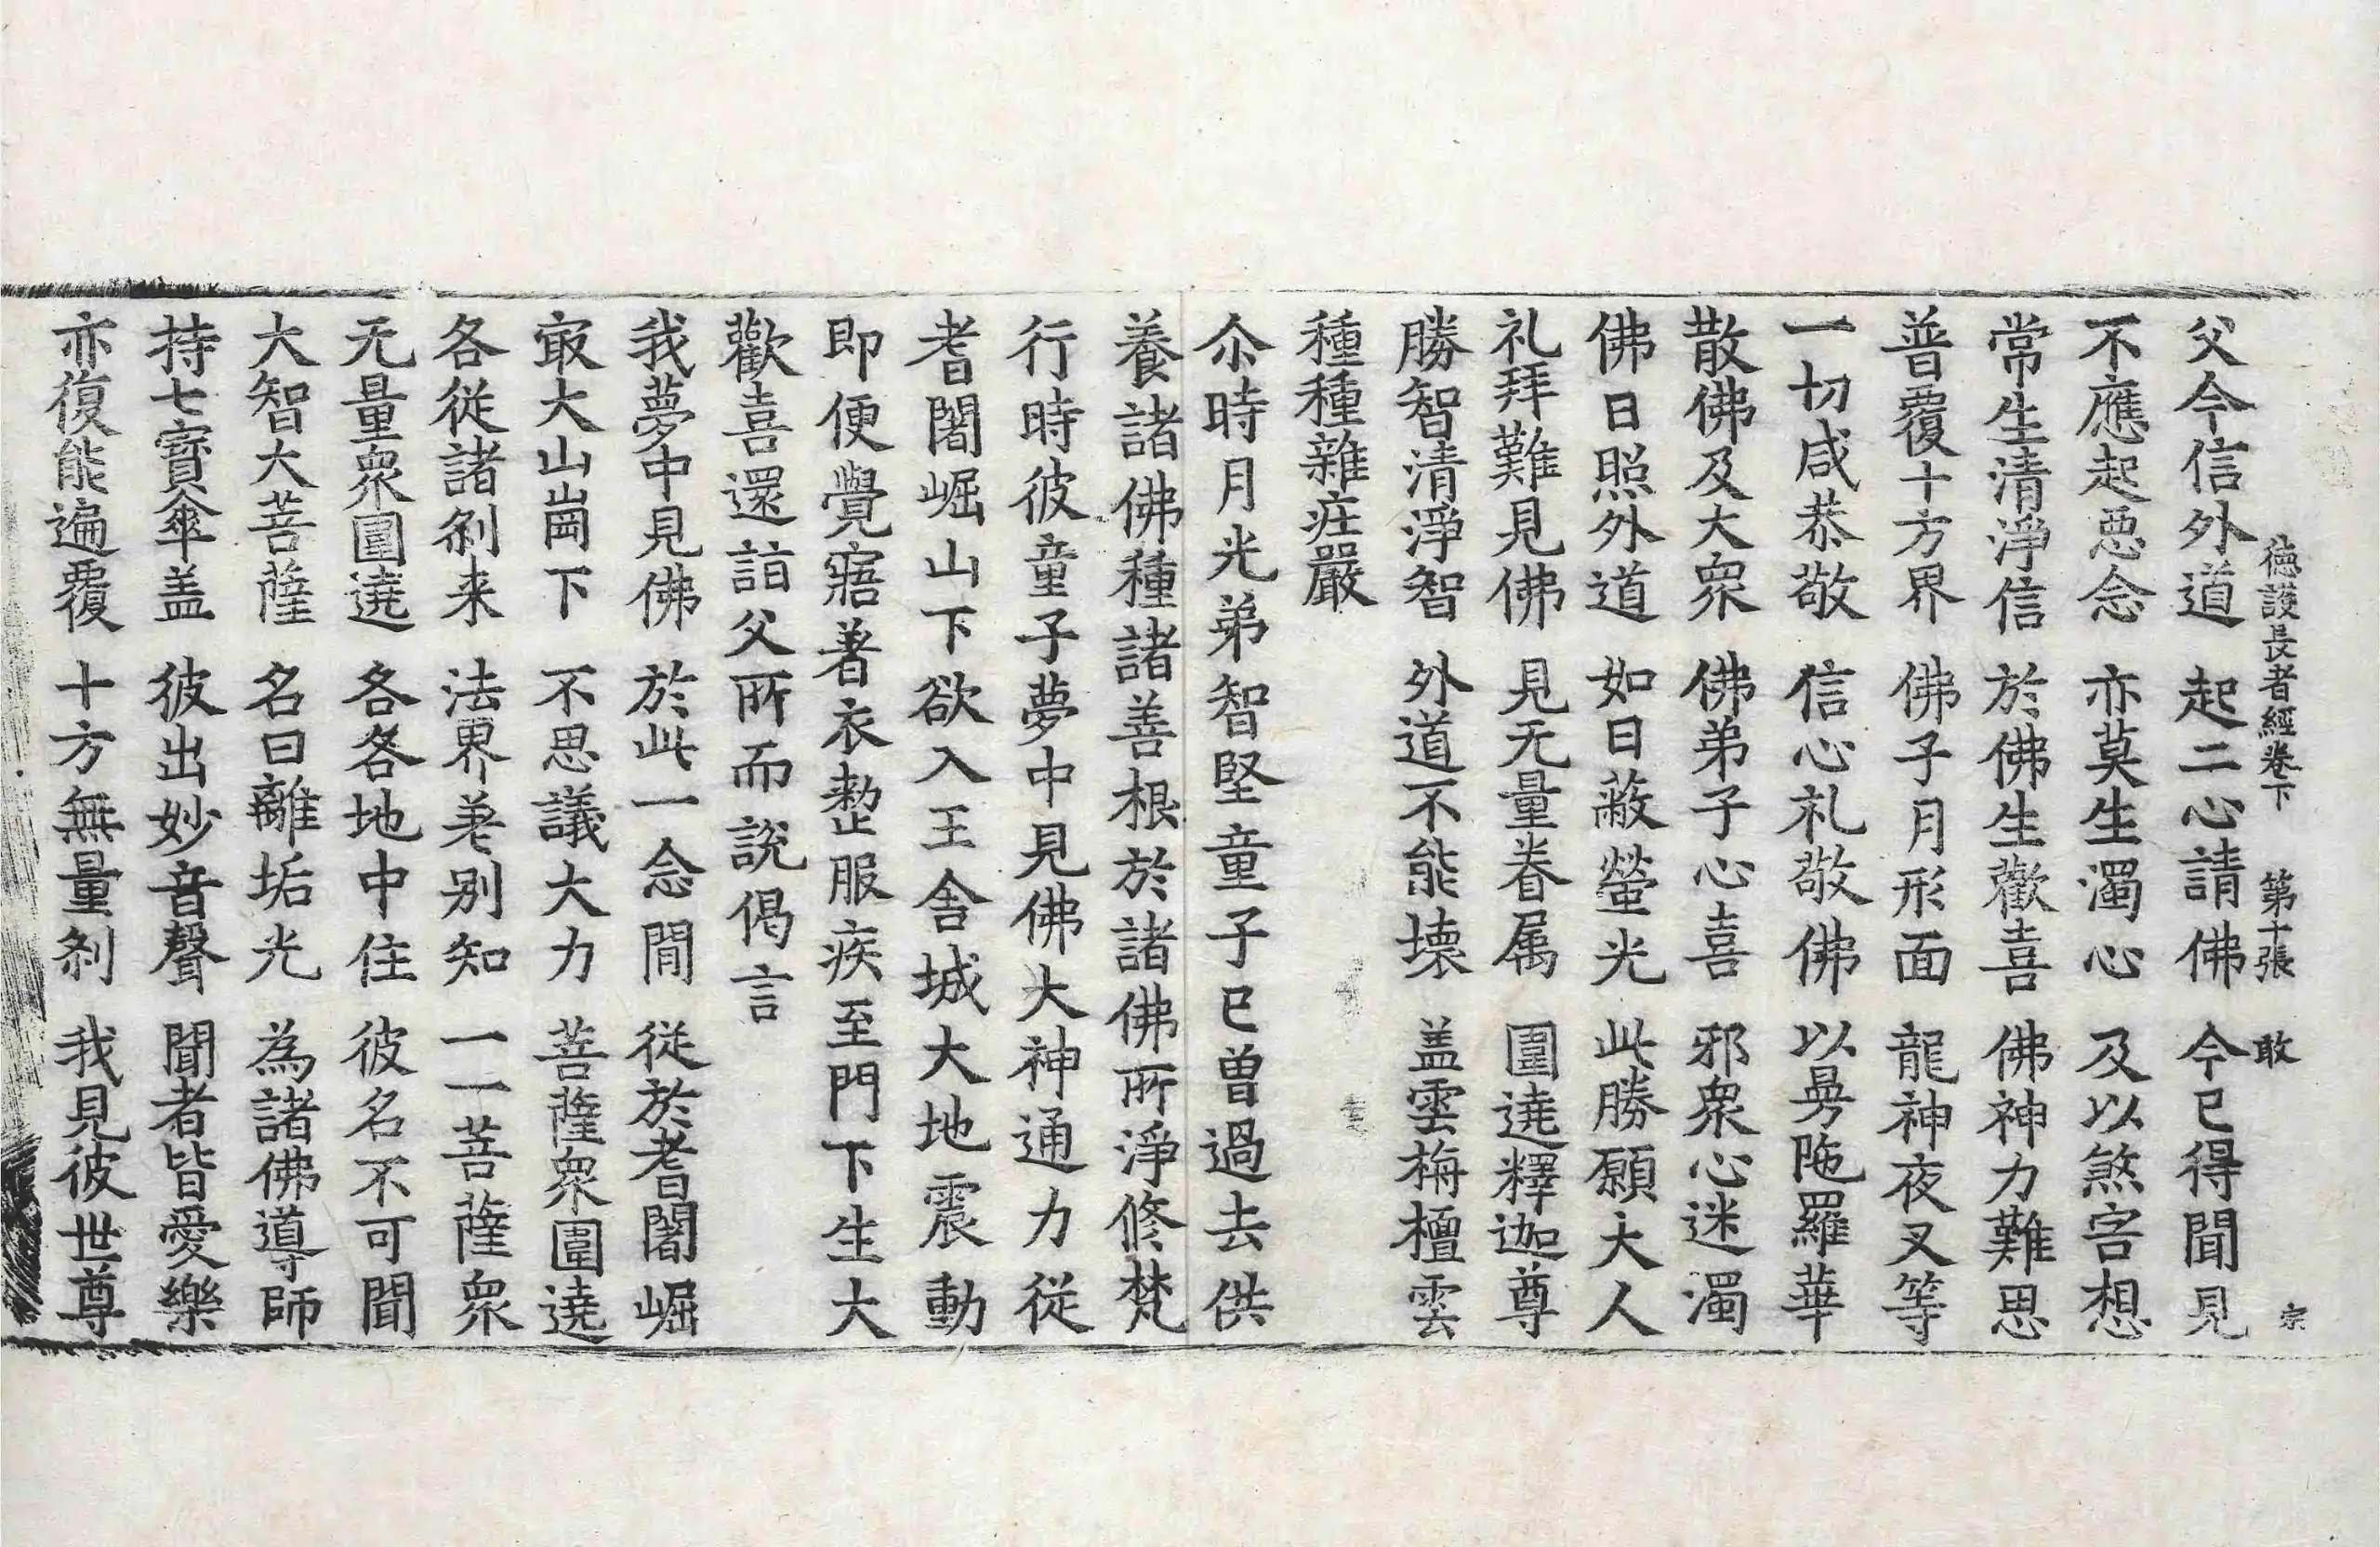 德護長者經卷下 第十張 敢 宗
父今信外道 起二心請佛 今已得聞見
不應起惡念 亦莫生濁心 及以煞害想
常生清淨信 於佛生歡喜 佛神力難思
普覆十方界 佛子月形面 龍神夜叉等
一切咸恭敬 信心礼敬佛 以曼陁羅華
散佛及大衆 佛弟子心喜 邪衆心迷濁
佛日照外道 如日蔽螢光 此勝願大人
礼拜難見佛 見无量眷属 圍遶釋迦尊
勝智清淨智 外道不能壞 盖雲栴檀雲
種種雜庄嚴
尒時月光弟智堅童子已曾過去供
養諸佛種諸善根於諸佛所淨修梵
行時彼童子夢中見佛大神通力從
耆闍崛山下欲入王舍城大地震動
即便覺寤著衣整服疾至門下生大
歡喜還詣父所而說偈言
我夢中見佛 於此一念閒 從於耆闍崛
㝡大山崗下 不思議大力 菩薩衆圍遶
各從諸剎来 法界差别知 一一菩薩衆
无量衆圍遶 各各地中住 彼名不可聞
大智大菩薩 名曰離垢光 為諸佛導師
持七寶傘盖 彼出妙音聲 聞者皆愛樂
亦復能遍覆 十方無量剎 我見彼世尊